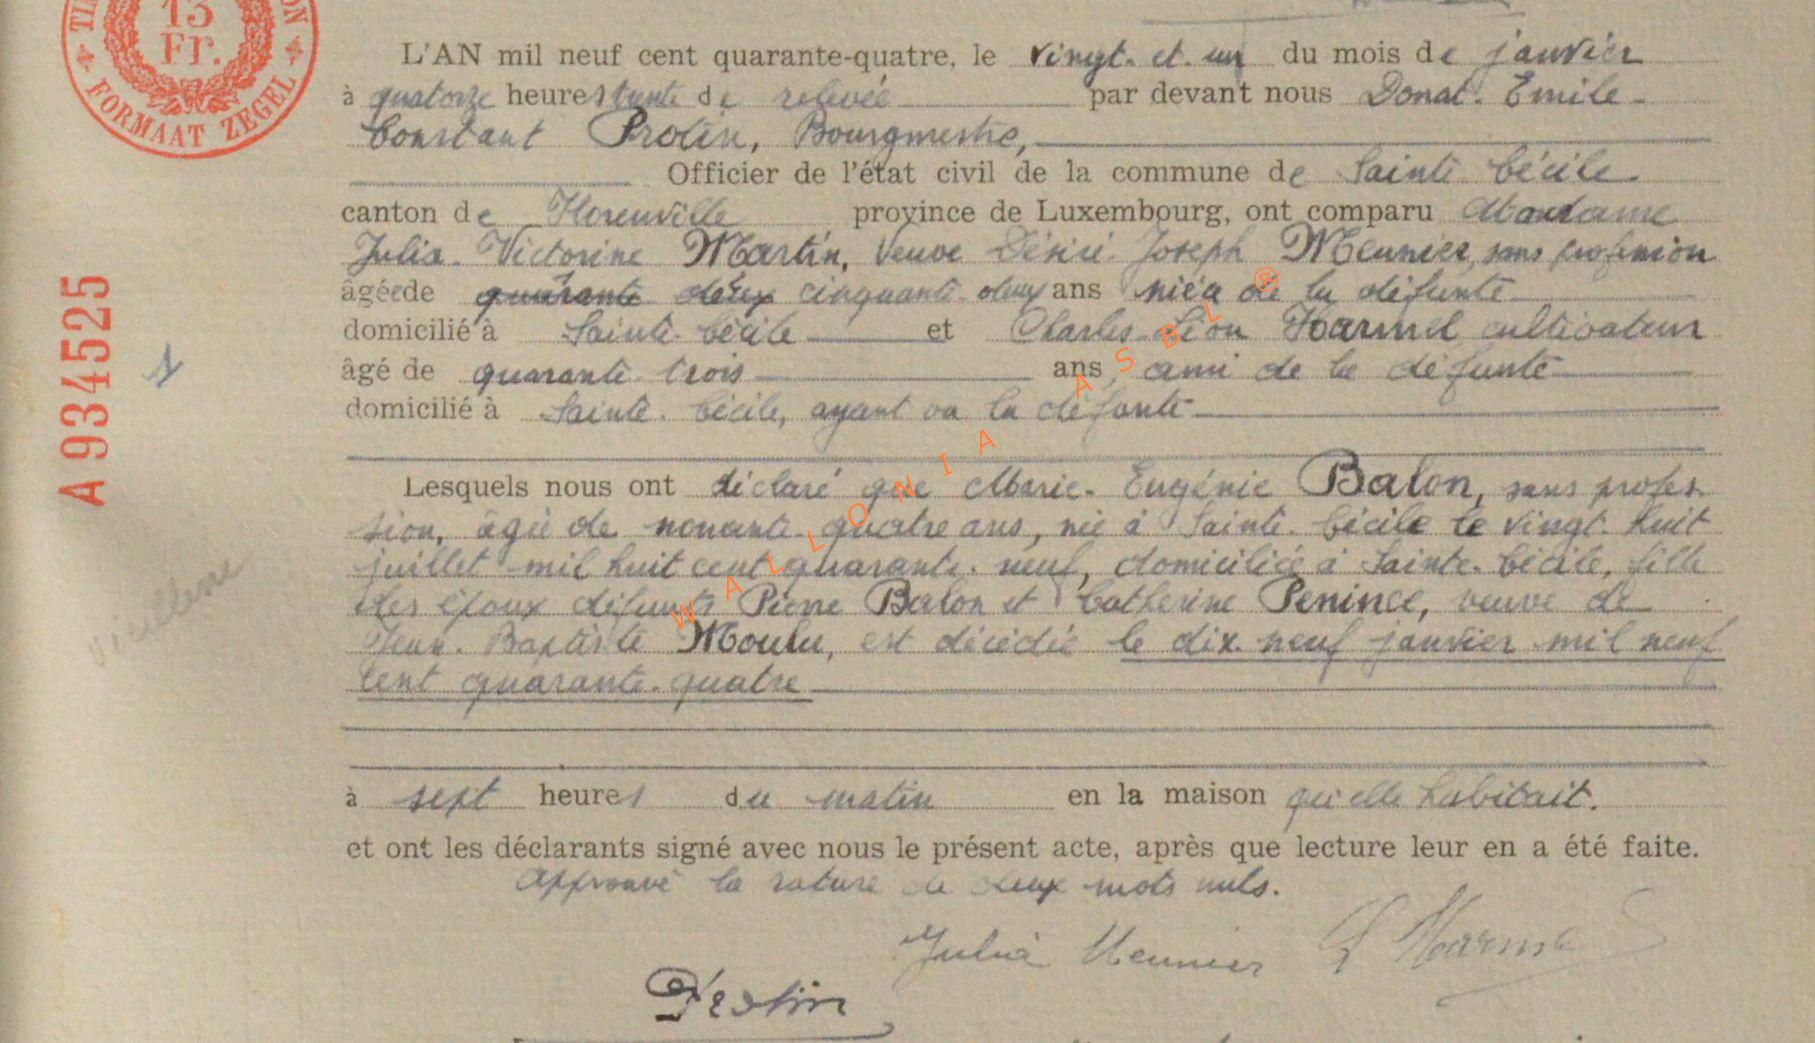 13
Fr.
FORMAAT ZEGEL
A 934525
1
vieillesse
L'AN mil neuf cent quarante-quatre, le vingt. et. un du mois de janvier
à quatorze heures trente de relevée par devant nous Donat. Emile-
Constant Protin, Bourgmestre,
Officier de l'état civil de la commune de Sainte Cécile.
canton de Florenville province de Luxembourg, ont comparu Madame
Julia. Victorine Martin, veuve Désiré. Joseph Meunier, sans profession
âgée de quarante deux cinquante. deux ans nièce de la défunte
domicilié à Sainte. Cécile et Charles Léon Harmel cultivateur
âgé de quarante. trois ans, ami de la défunte
domicilié à Sainte. Cécile, ayant vu la défunte
Lesquels nous ont déclaré que Marie. Eugénie Balon, sans profes-
sion, âgée de nonante. quatre ans, née à Sainte. Cécile le vingt. huit
juillet mil huit cent quarante. neuf, domiciliée à Sainte. Cécile, fille
des époux défunts Pierre Balon et Catherine Penince, veuve de
Jean. Baptiste Moulu, est décédée le dix. neuf janvier mil neuf
cent quarante. quatre
à sept heures du matin en la maison qu'elle habitait.
et ont les déclarants signé avec nous le présent acte, après que lecture leur en a été faite.
Approuvé la rature de deux mots nuls.
Julia Meunier L Harmel
Protin
WALLONIA ASBL ®